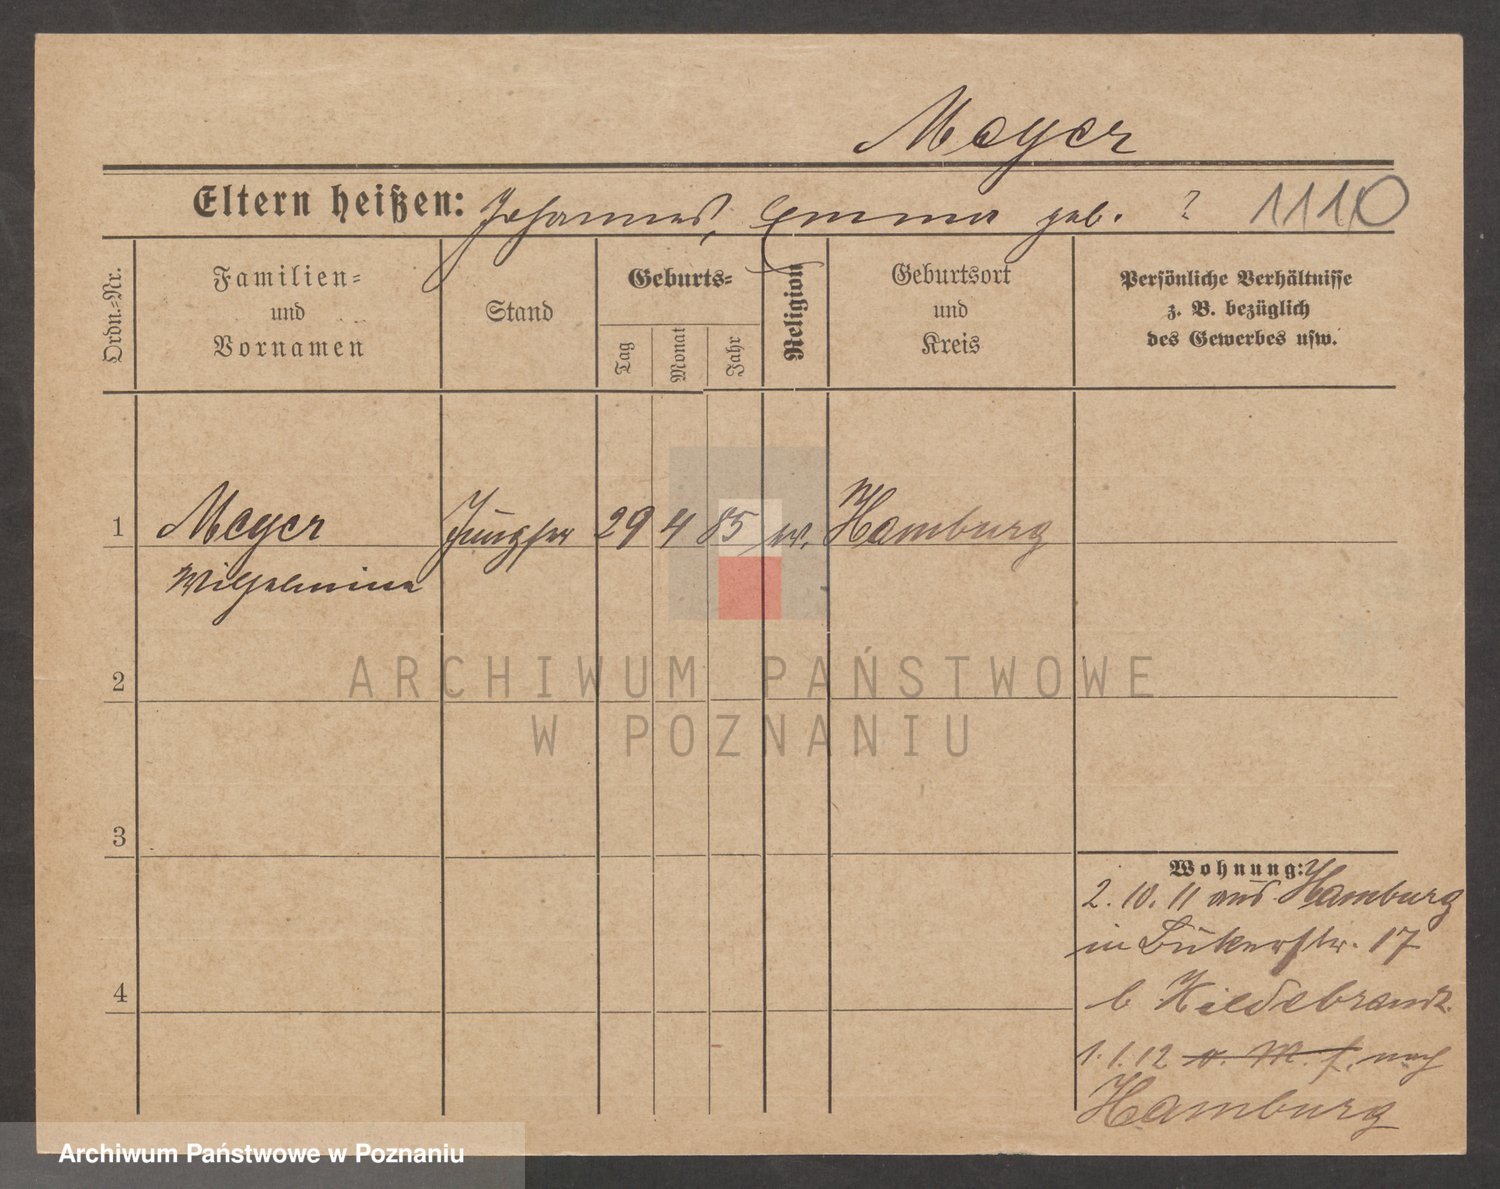 Meyer
Eltern heißen: Johannes, Emma geb. ? 1110
Ordn.-Nr.
Familien-
und
Vornamen
Stand
Geburts-
Tag
Monat
Jahr
Religion
Geburtsort
und
Kreis
Persönliche Verhältnisse
z. B. bezüglich
des Gewerbes usw.
1 Meyer Jungfer 29 4 85 ev. Hamburg
Wilhelmine
2
3
4
Wohnung:
2. 10. 11 aus Hamburg
in 17
b Hildebrandt
1. 1. 12 nach
Hamburg
ARCHIWUM PAŃSTWOWE
W POZNANIU
Archiwum Państwowe w Poznaniu